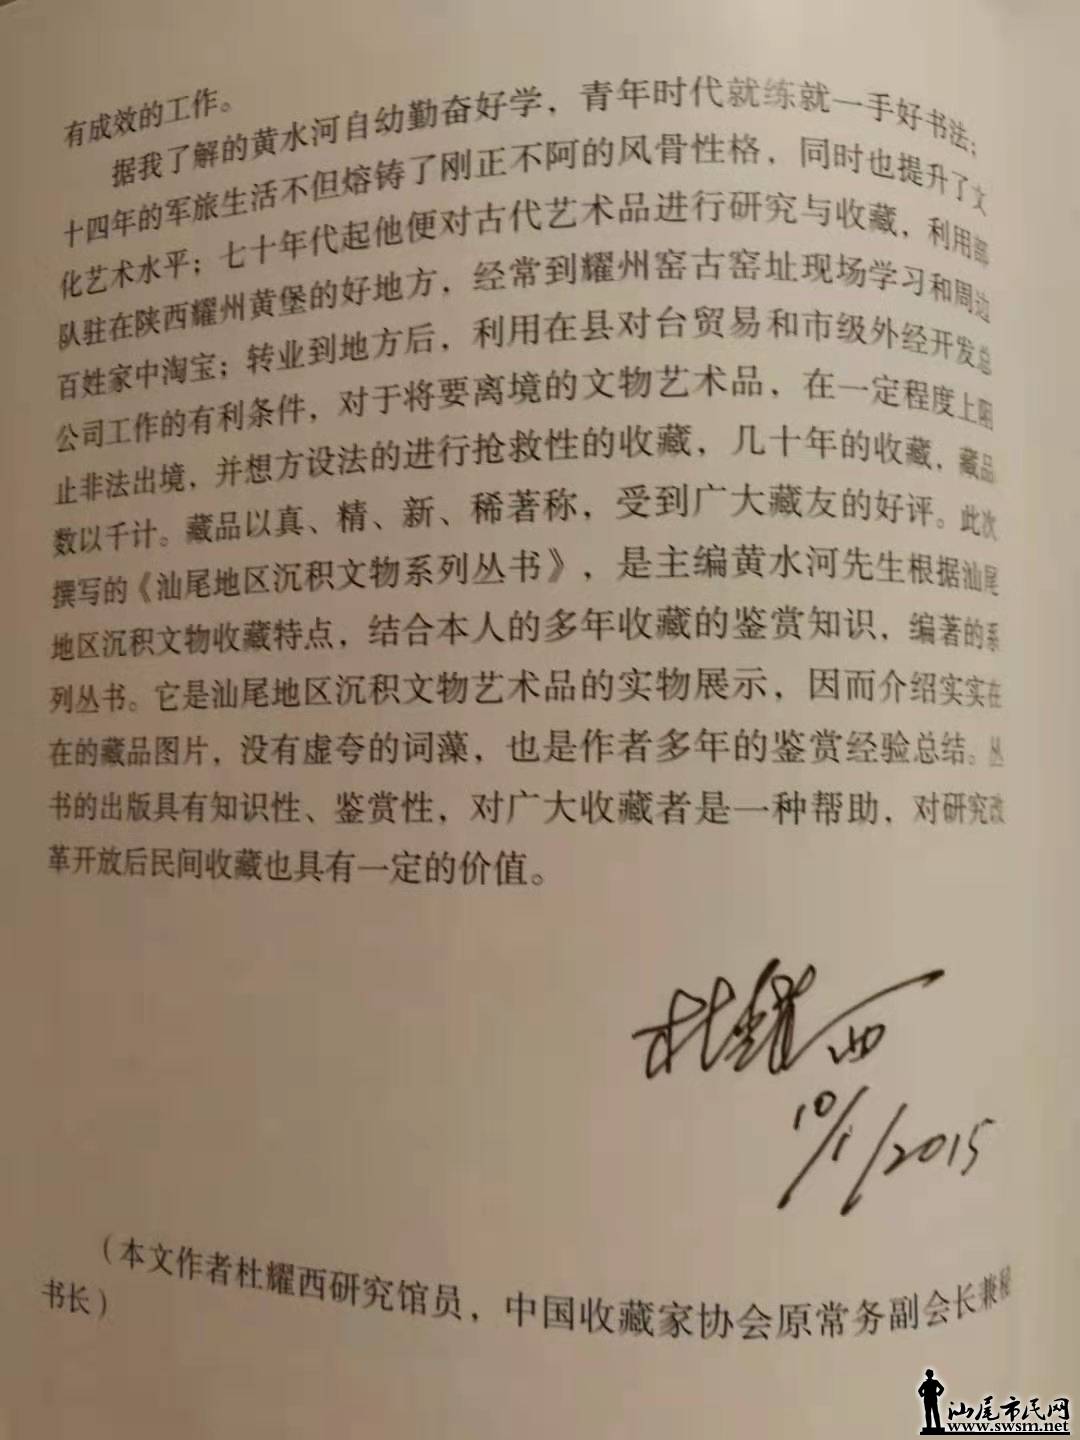 有成效的工作。
据我了解的黄水河自幼勤奋好学，青年时代就练就一手好书法；
十四年的军旅生活不但熔铸了刚正不阿的风骨性格，同时也提升了文
化艺术水平；七十年代起他便对古代艺术品进行研究与收藏，利用部
队驻在陕西耀州黄堡的好地方，经常到耀州窑古窑址现场学习和周边
百姓家中淘宝；转业到地方后，利用在县对台贸易和市级外经开发总
公司工作的有利条件，对于将要离境的文物艺术品，在一定程度上阻
止非法出境，并想方设法的进行抢救性的收藏，几十年的收藏，藏品
数以千计。藏品以真、精、新、稀著称，受到广大藏友的好评。此次
撰写的《汕尾地区沉积文物系列丛书》，是主编黄水河先生根据汕尾
地区沉积文物收藏特点，结合本人的多年收藏的鉴赏知识，编著的系
列丛书。它是汕尾地区沉积文物艺术品的实物展示，因而介绍实实在
在的藏品图片，没有虚夸的词藻，也是作者多年的鉴赏经验总结。丛
书的出版具有知识性、鉴赏性，对广大收藏者是一种帮助，对研究改
革开放后民间收藏也具有一定的价值。
杜耀西
10/1/2015
（本文作者杜耀西研究馆员，中国收藏家协会原常务副会长兼秘
书长）
汕尾市民网
www.swsm.net